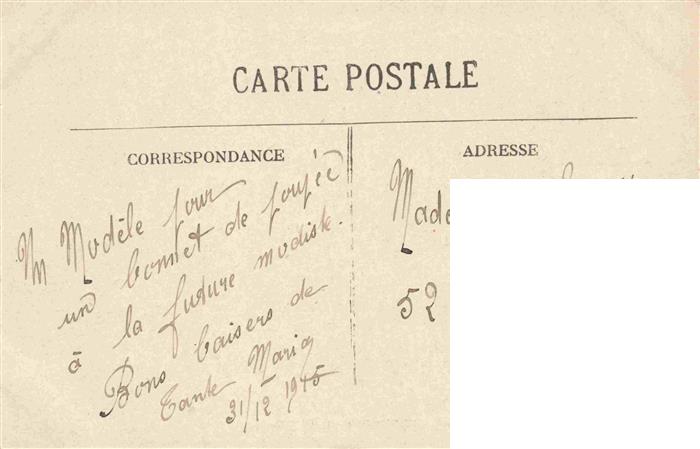 CARTE POSTALE
CORRESPONDANCE
ADRESSE
Un Modèle pour
un bonnet de poupée
à la future modiste.
Bons baisers de
Tante Maria
31/12 1915
Made
52